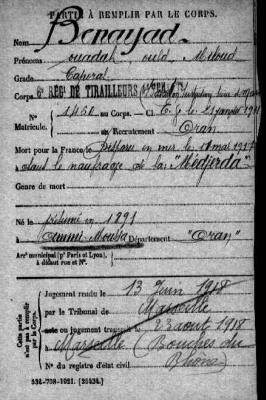 PARTIE À REMPLIR PAR LE CORPS.
Nom Benayad
Prénoms ouadah ould Miloud
Grade Caporal
Corps 6e RÉGt DE TIRAILLEURS
N° 1450 au Corps. — Cl.
Matricule. au Recrutement Oran
Mort pour la France le disparu en mer le 11 mai 1917
dans le naufrage de la "Médjerda"
Genre de mort
Né le présumé en 1891
à Département "Oran"
Arrt municipal (pr Paris et Lyon),
à défaut rue et N°.
Cette partie
n'est pas à remplir
par le Corps.
Jugement rendu le 13 Juin 1918
par le Tribunal de Marseille
acte ou jugement transcrit le 23 août 1918
à Marseille (Bouches du
Rhône)
N° du registre d'état civil
534-708-1921. [26434.]